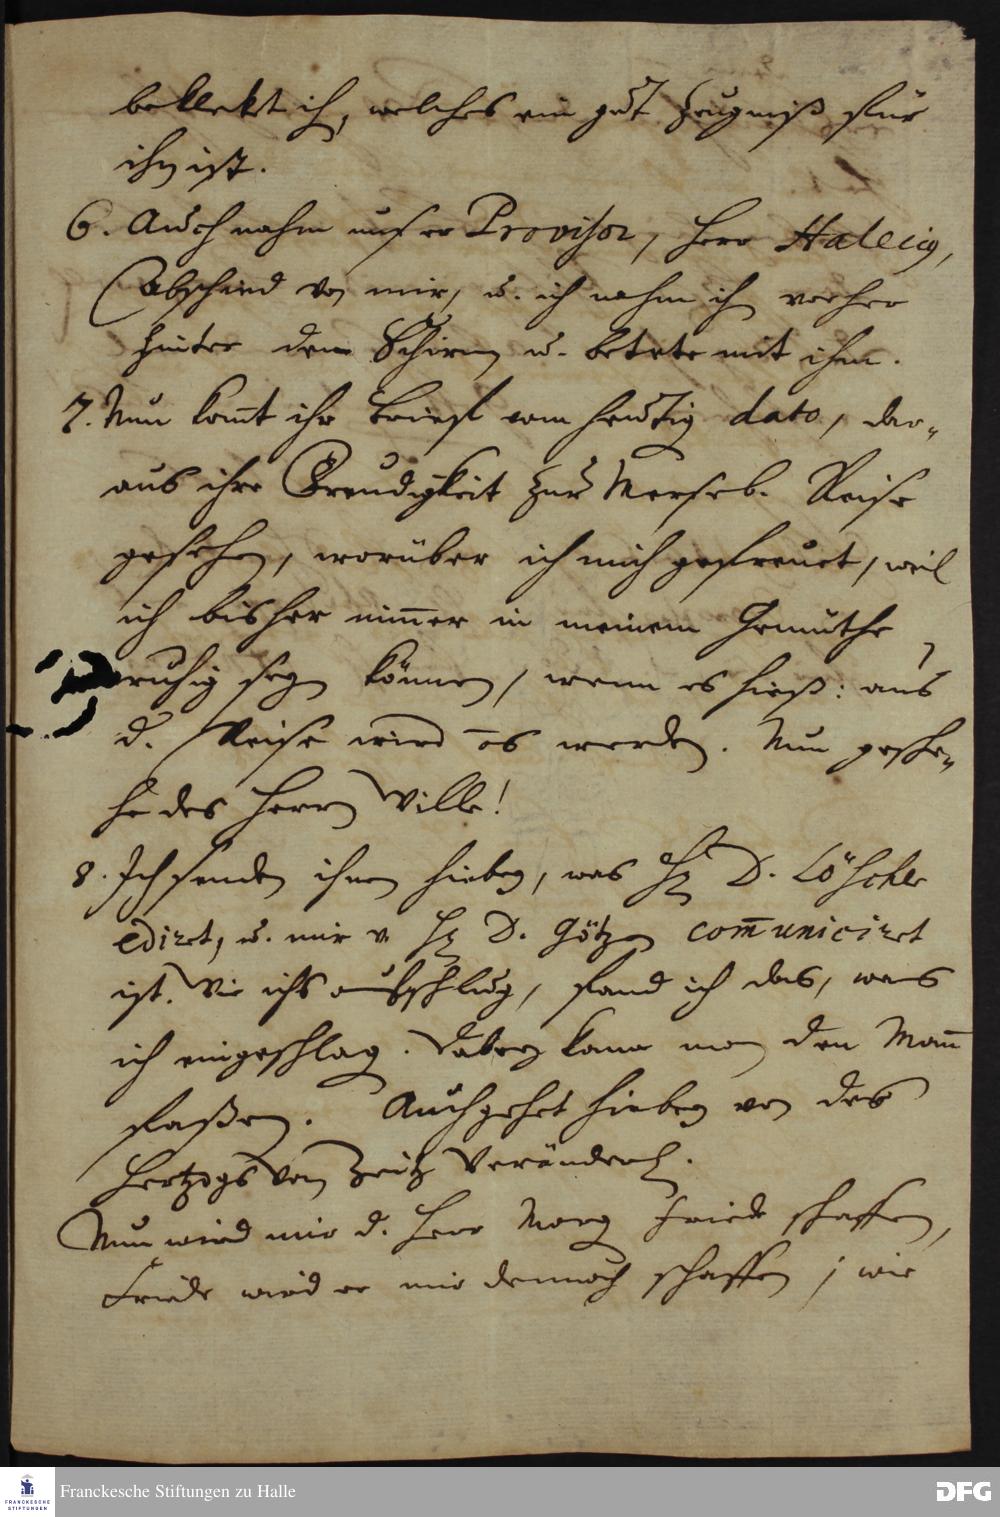 beklekt ich, welches ein gut Zeugniß für
ihn ist.
6. Auch nahm unser Provisor, Herr
Abschied von mir, u. ich nahm ihn vorher
hinter den Schirm u. betete mit ihm.
7. Nun komt ihr Brief vom heutig dato, dar-
aus ihre Freudigkeit zur Merseb. Reise
gesehen, worüber ich mich gefreuet, weil
ich bisher nimmer in meinem Gemüthe
ruhig seyn können, wenn es hieß: aus
d. Reise wird es werden. Nun gesche-
he des Herrn Wille!
8. Ich sende ihnen hiebey, was H. D. Löscher
ediret, u. mir v. H. D. Götzen communiciret
ist. Wie ichs aufschlug, fand ich das, was
ich eingeschlag. Dabey kann man den Mann
faßen. Auch gehet hiebey von des
Hertzogs von Zeitz Veränder.
Nun wird mir d. Herr Morg Friede schaffen,
Friede wird er mir dennoch schaffen; wie
Franckesche Stiftungen zu Halle
FRANCKESCHE
STIFTUNGEN
DFG